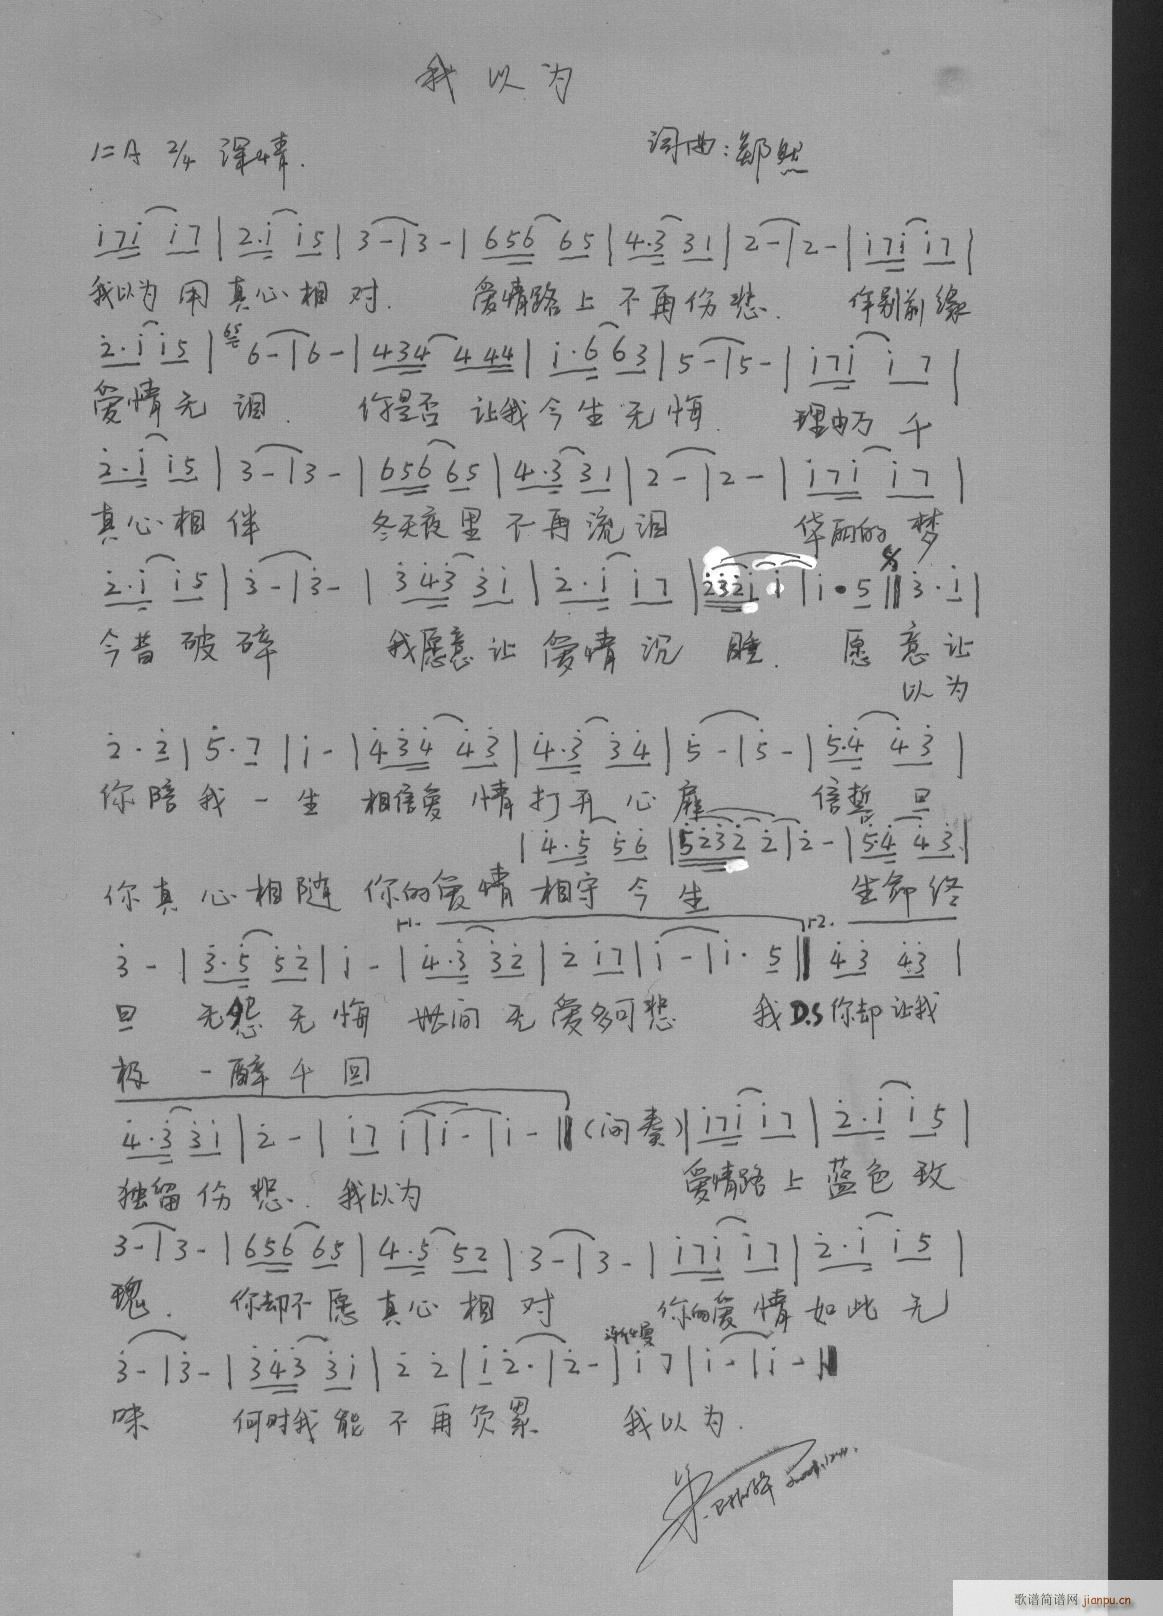 我以为
1=A 2/4 深情. 词曲:郑然
i7i i7 | 2·i i5 | 3-|3-| 656 65 | 4·3 31 | 2-|2-| i7i i7 |
我以为用真心相对. 爱情路上不再伤悲. 作别前缘
2·i i5 | 65 6-|6-| 434 444 | i·6 63 | 5-|5-| i7i i7 |
爱情无泪. 你是否让我今生无悔. 理由万千
2·i i5 | 3-|3-| 656 65 | 4·3 31 | 2-|2-| i7i i7 |
真心相伴 冬天夜里不再流泪 华丽的梦
2·i i5 | 3-|3-| 343 3i | 2·i i7 | 232i i | i·5 || 3·i |
今昔破碎 我愿意让爱情沉睡. 愿意让
以为
2·2 | 5·7 | i-| 434 43 | 4·3 34 | 5-|5-| 5·4 43 |
你陪我一生 相信爱情打开心扉 信誓旦
| 4·5 56 | 5232 2 | 2-| 5·4 43 |
你真心相随 你的爱情相守今生 生命终
r1. r2.
3-| 3·5 52 | i-| 4·3 32 | 2 i7 | i-|i·5 || 43 43 |
旦 无怨无悔 世间无爱多可悲 我D.S你却让我
极 一醉千回
4·3 3i | 2-| i7 i|i-|i-|| (间奏) | i7i i7 | 2·i i5 |
独留伤悲. 我以为 爱情路上蓝色玫
3-|3-| 656 65 | 4·5 52 | 3-|3-| i7i i7 | 2·i i5 |
瑰. 你却不愿真心相对 你的爱情如此无
渐慢
3-|3-| 343 3i | 2 2 | i 2·|2-| i 7 | i-|i-||
味 何时我能不再负累 我以为.
歌谱简谱网 jianpu.cn